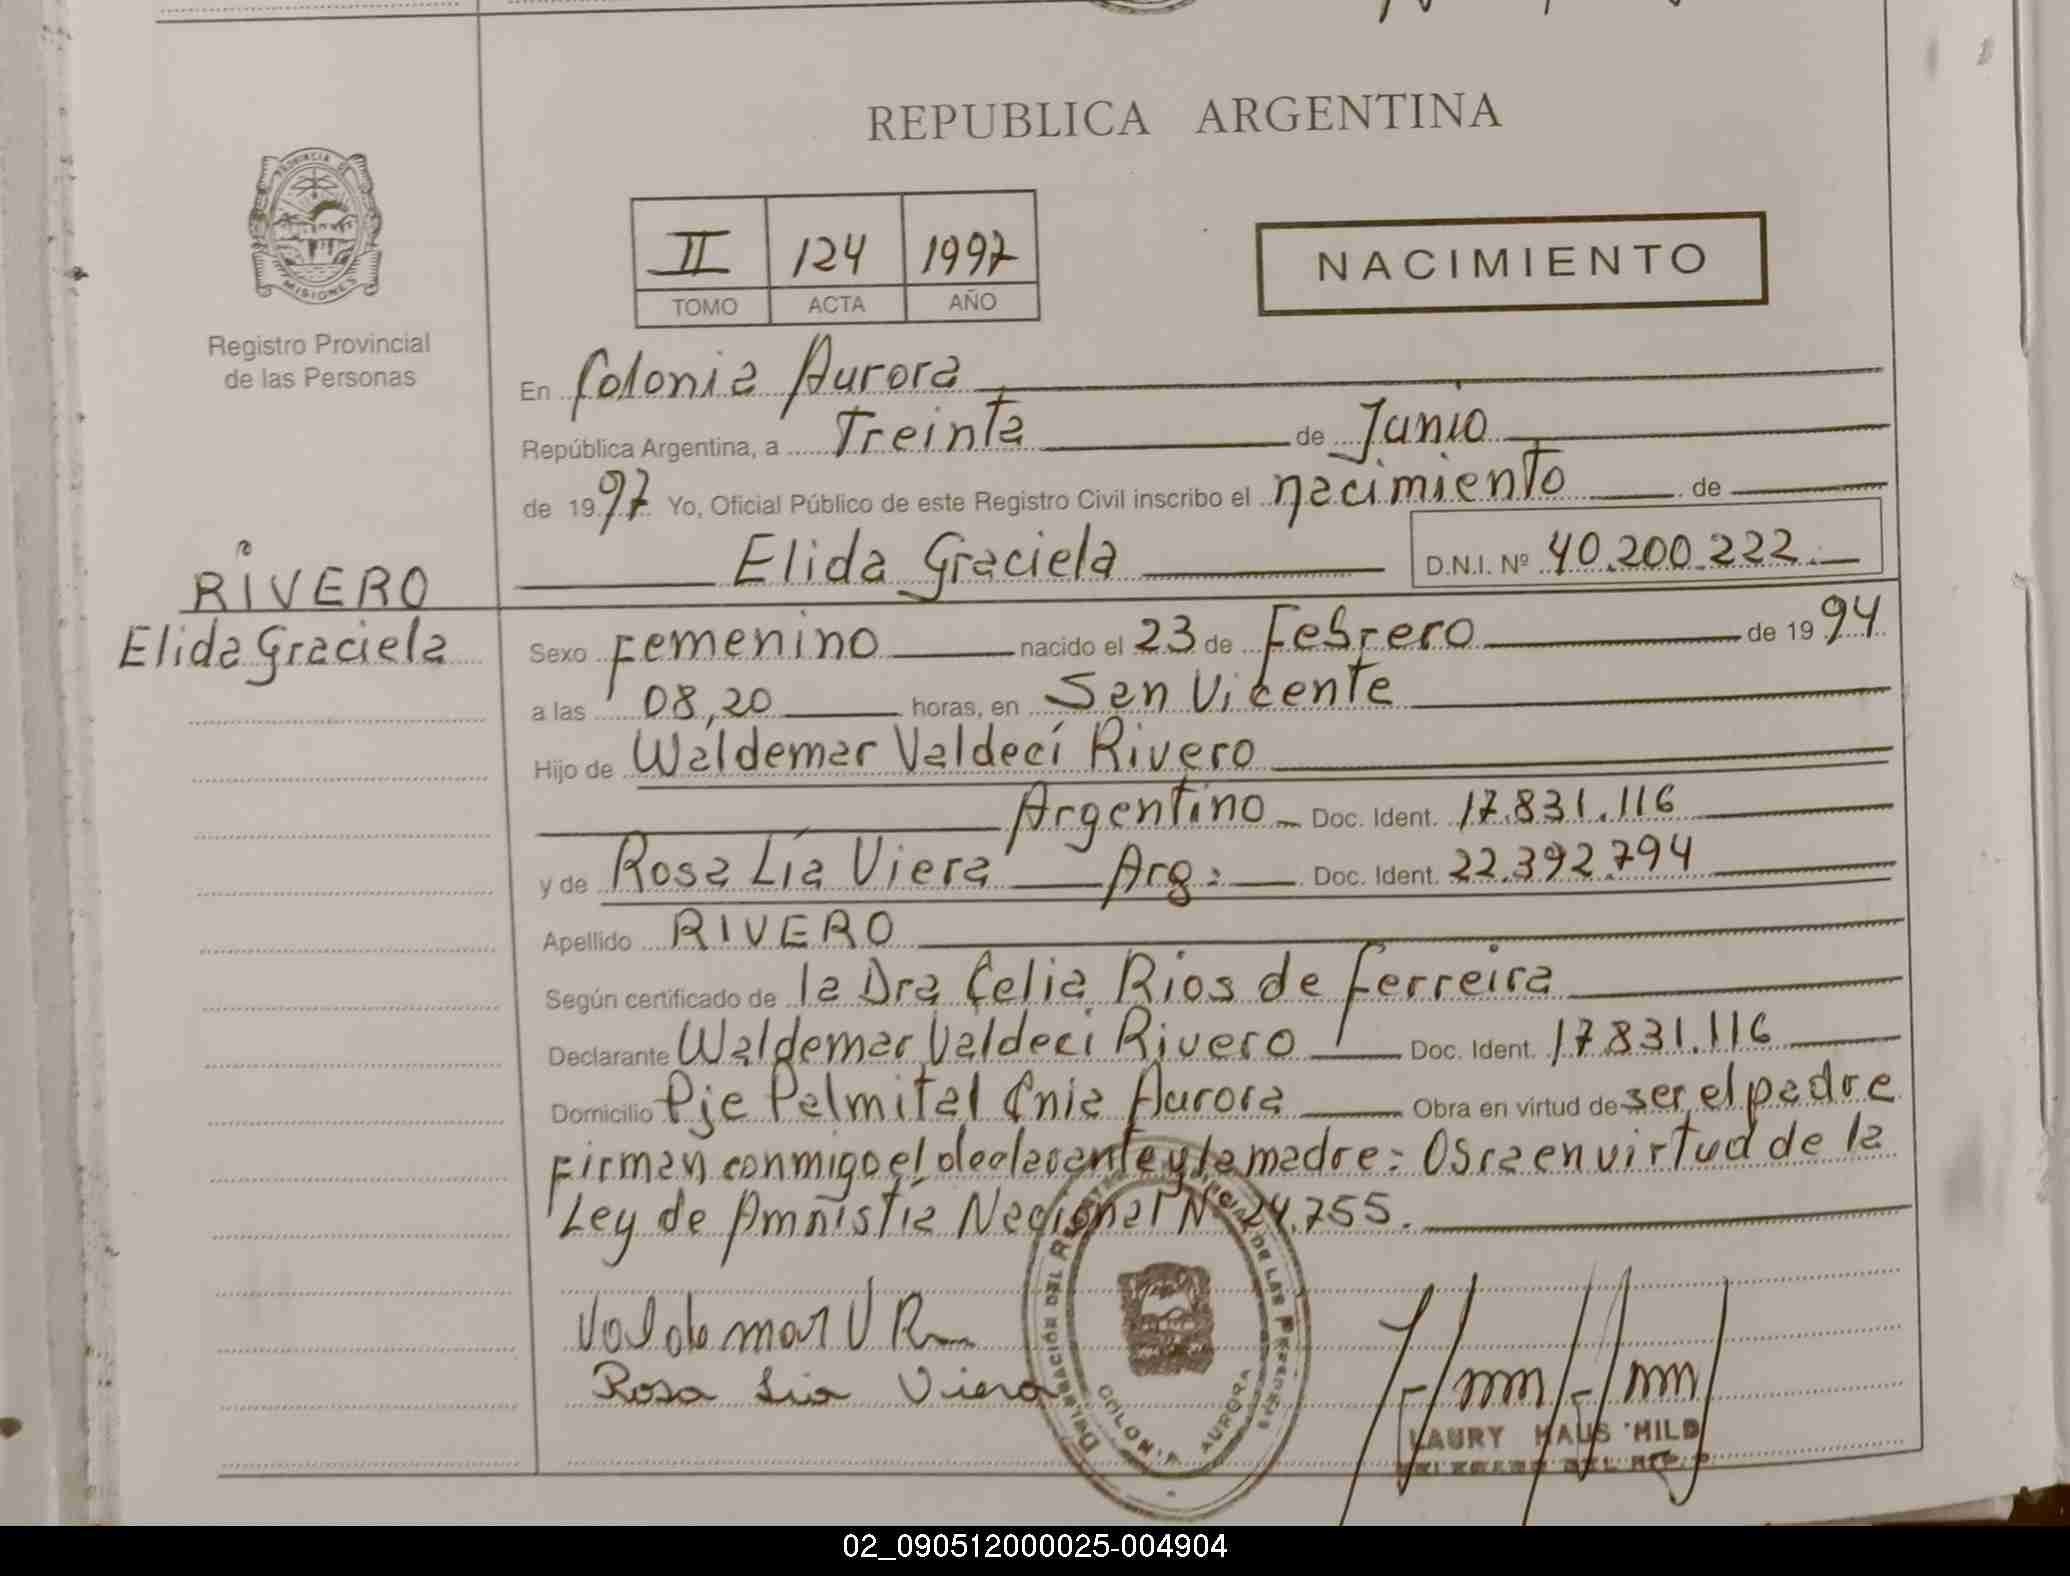 REPUBLICA ARGENTINA
PROVINCIA DE
MISIONES
Registro Provincial
de las Personas
II 124 1997
TOMO ACTA AÑO
NACIMIENTO
En Colonia Aurora
República Argentina, a Treinta de Junio
de 1997 Yo, Oficial Público de este Registro Civil inscribo el nacimiento de
Elida Graciela D.N.I. Nº 40.200.222.
RIVERO
Elida Graciela
Sexo Femenino nacido el 23 de Febrero de 1994
a las 08,20 horas, en San Vicente
Hijo de Waldemar Valdecí Rivero
Argentino Doc. Ident. 17.831.116
y de Rosa Lía Viera Arg: Doc. Ident. 22.392.794
Apellido RIVERO
Según certificado de la Dra Celia Rios de Ferreira
Declarante Waldemar Valdeci Rivero Doc. Ident. 17831.116
Domicilio Pje Palmital Cnia Aurora Obra en virtud de ser el padre
Firman conmigo el declarante y la madre: Obra en virtud de la
Ley de Amnistía Nacional Nº 24.755.
Valdemar V R
Rosa Lia Viera
DELEGACIÓN DEL REGISTRO PROVINCIAL DE LAS PERSONAS
COLONIA AURORA
LAURY HAUS MILD
02_090512000025-004904